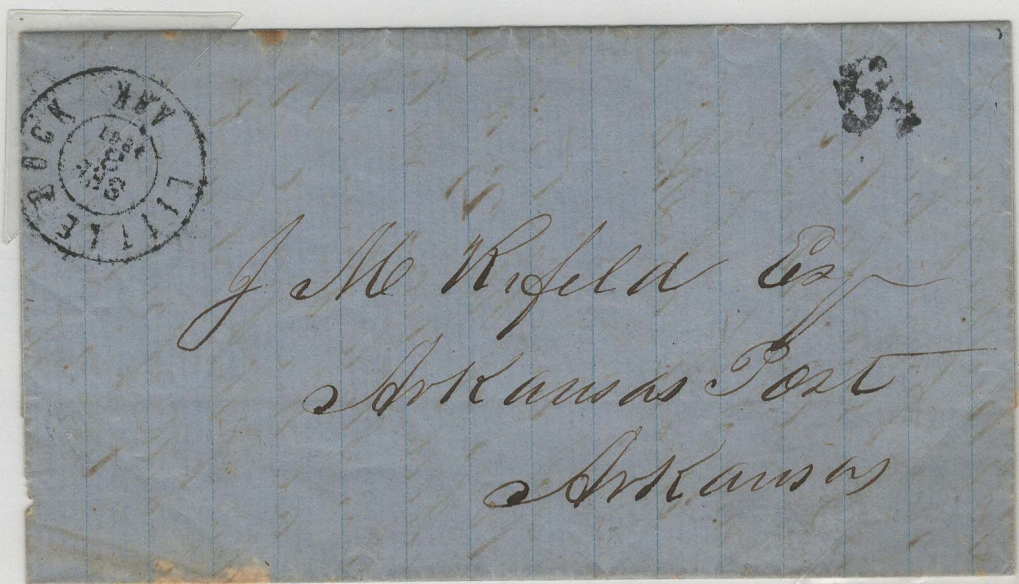 LITTLE ROCK ARK
J M Kifeld Esq
Arkansas Post
Arkansas